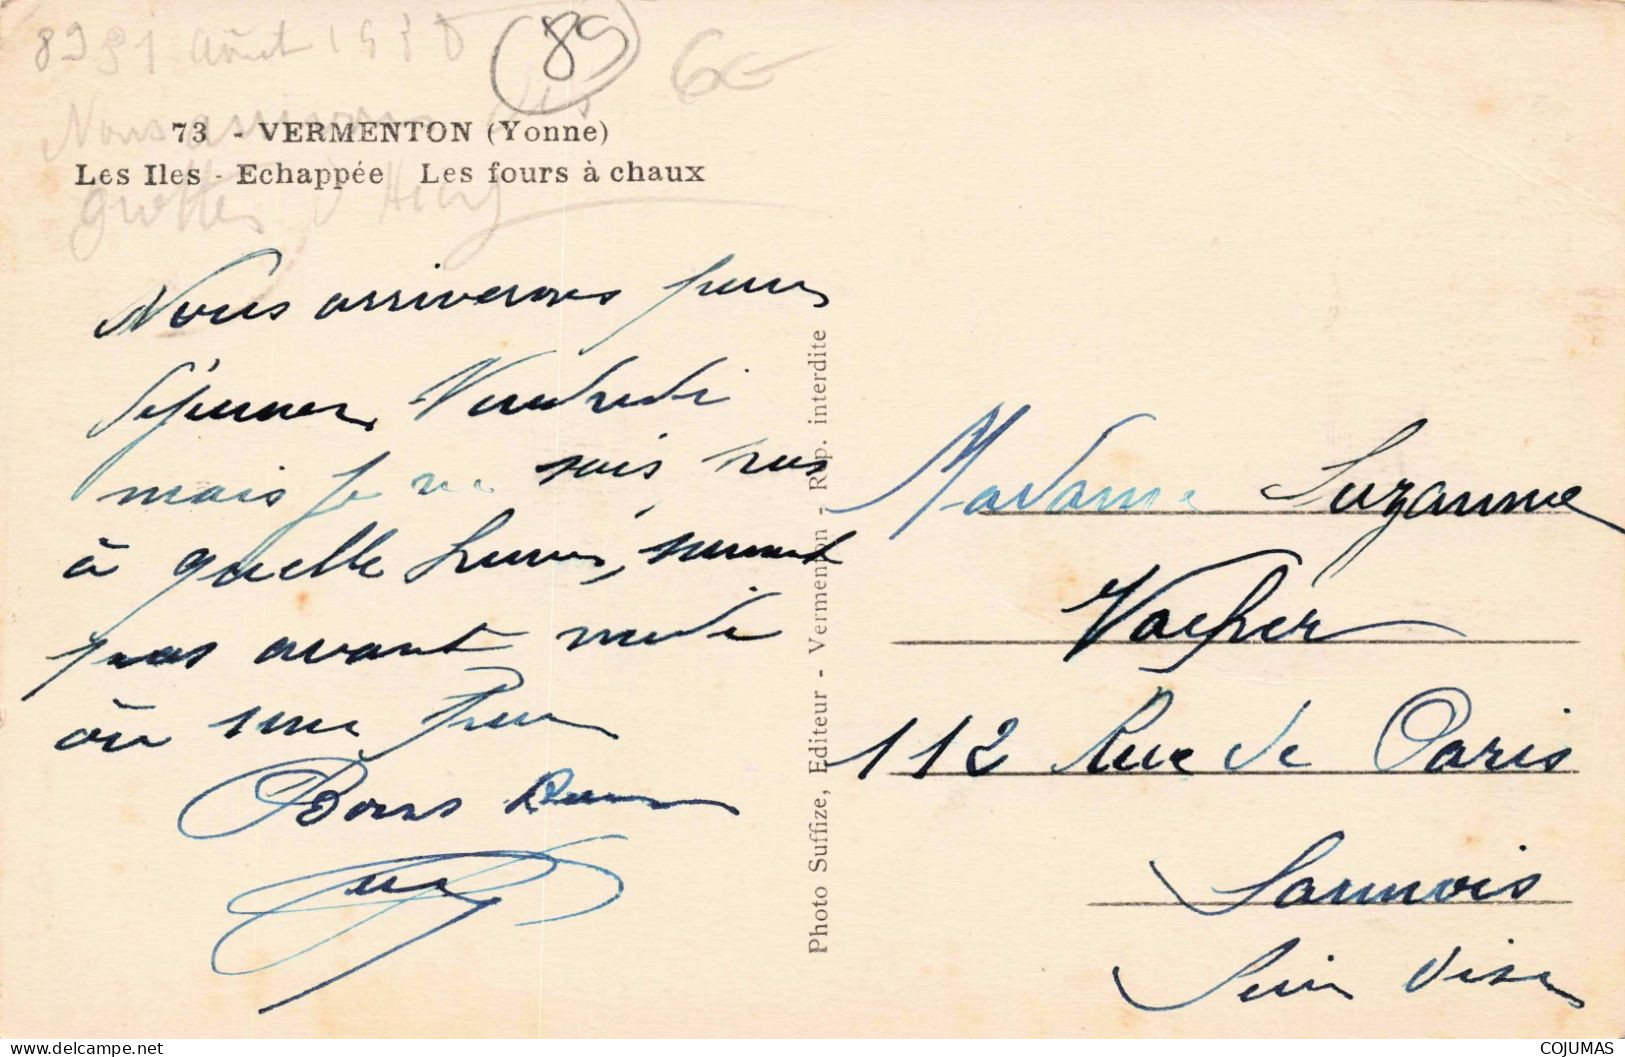 89 31 Août 19
89
6€
Nous arrivons
73 - VERMENTON (Yonne)
Les Iles - Echappée Les fours à chaux
grottes d'Arcy
Nous arriverons pour
déjeuner Vendredi
mais je ne sais pas
à quelle heure, surement
pas avant midi
ou une heure
Bons Baisers
Photo Suffize, Editeur - Vermenton - Rep. interdite
Madame Suzanne
Vacher
112 Rue de Paris
Sannois
Seine Oise
COJUMAS